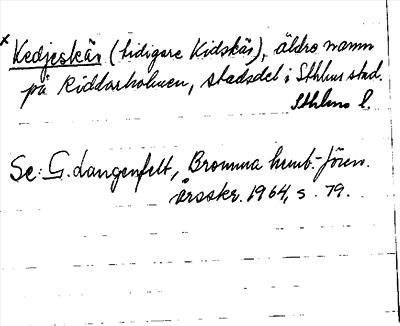 x Kedjeskär (tidigare Kidskär), äldre namn
på Riddarholmen, stadsdel i Sthlms stad.
Sthlms l.
Se: G. Langenfelt, Bromma hemb.-fören.
årsskr. 1964, s. 79.